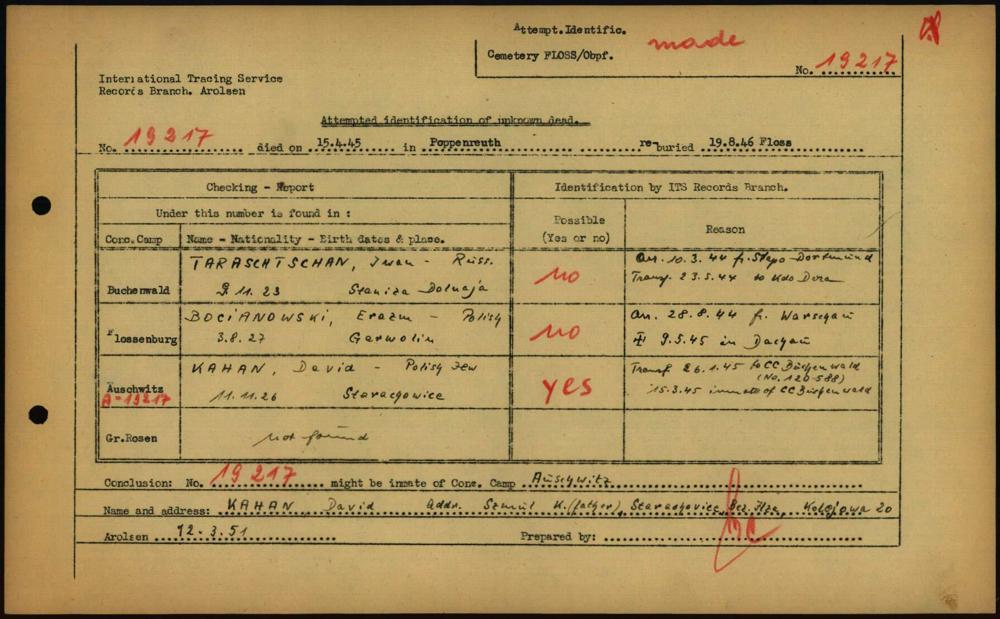 Attempt. Identific.
Cemetery FLOSS/Obpf.
made
No. 19217
International Tracing Service
Records Branch. Arolsen
Attempted identification of unknown dead.
No. 19217 died on 15.4.45 in Poppenreuth re-buried 19.8.46 Floss
Checking - Report
Identification by ITS Records Branch.
Under this number is found in :
Possible
(Yes or no)
Reason
Conc.Camp Name - Nationality - Birth dates & place.
TARASCHTSCHAN, Iwan - Russ. no Arr. 10.3.44 fr. Stapo Dortmund
Buchenwald 9.11.23 Staniza Dolnaja Transf. 23.5.44 to Kdo Dora
BOCIANOWSKI, Erazm - Polish no Arr. 28.8.44 fr. Warschau
Flossenburg 3.8.27 Garwolin 9.5.45 in Dachau
KAHAN, David - Polish Jew yes Transf. 26.1.45 to CC Buchenwald
(No. 120588)
Auschwitz 11.11.26 Starachowice 15.3.45 inmate of CC Buchenwald
A-19217
Gr.Rosen not found
Conclusion: No. 19217 might be inmate of Conc. Camp Auschwitz
Name and address: KAHAN David Addr. Szmul K. (father), Starachovice, Bez. Ilza, Kolejowa 20
Arolsen 12-3.51 Prepared by: